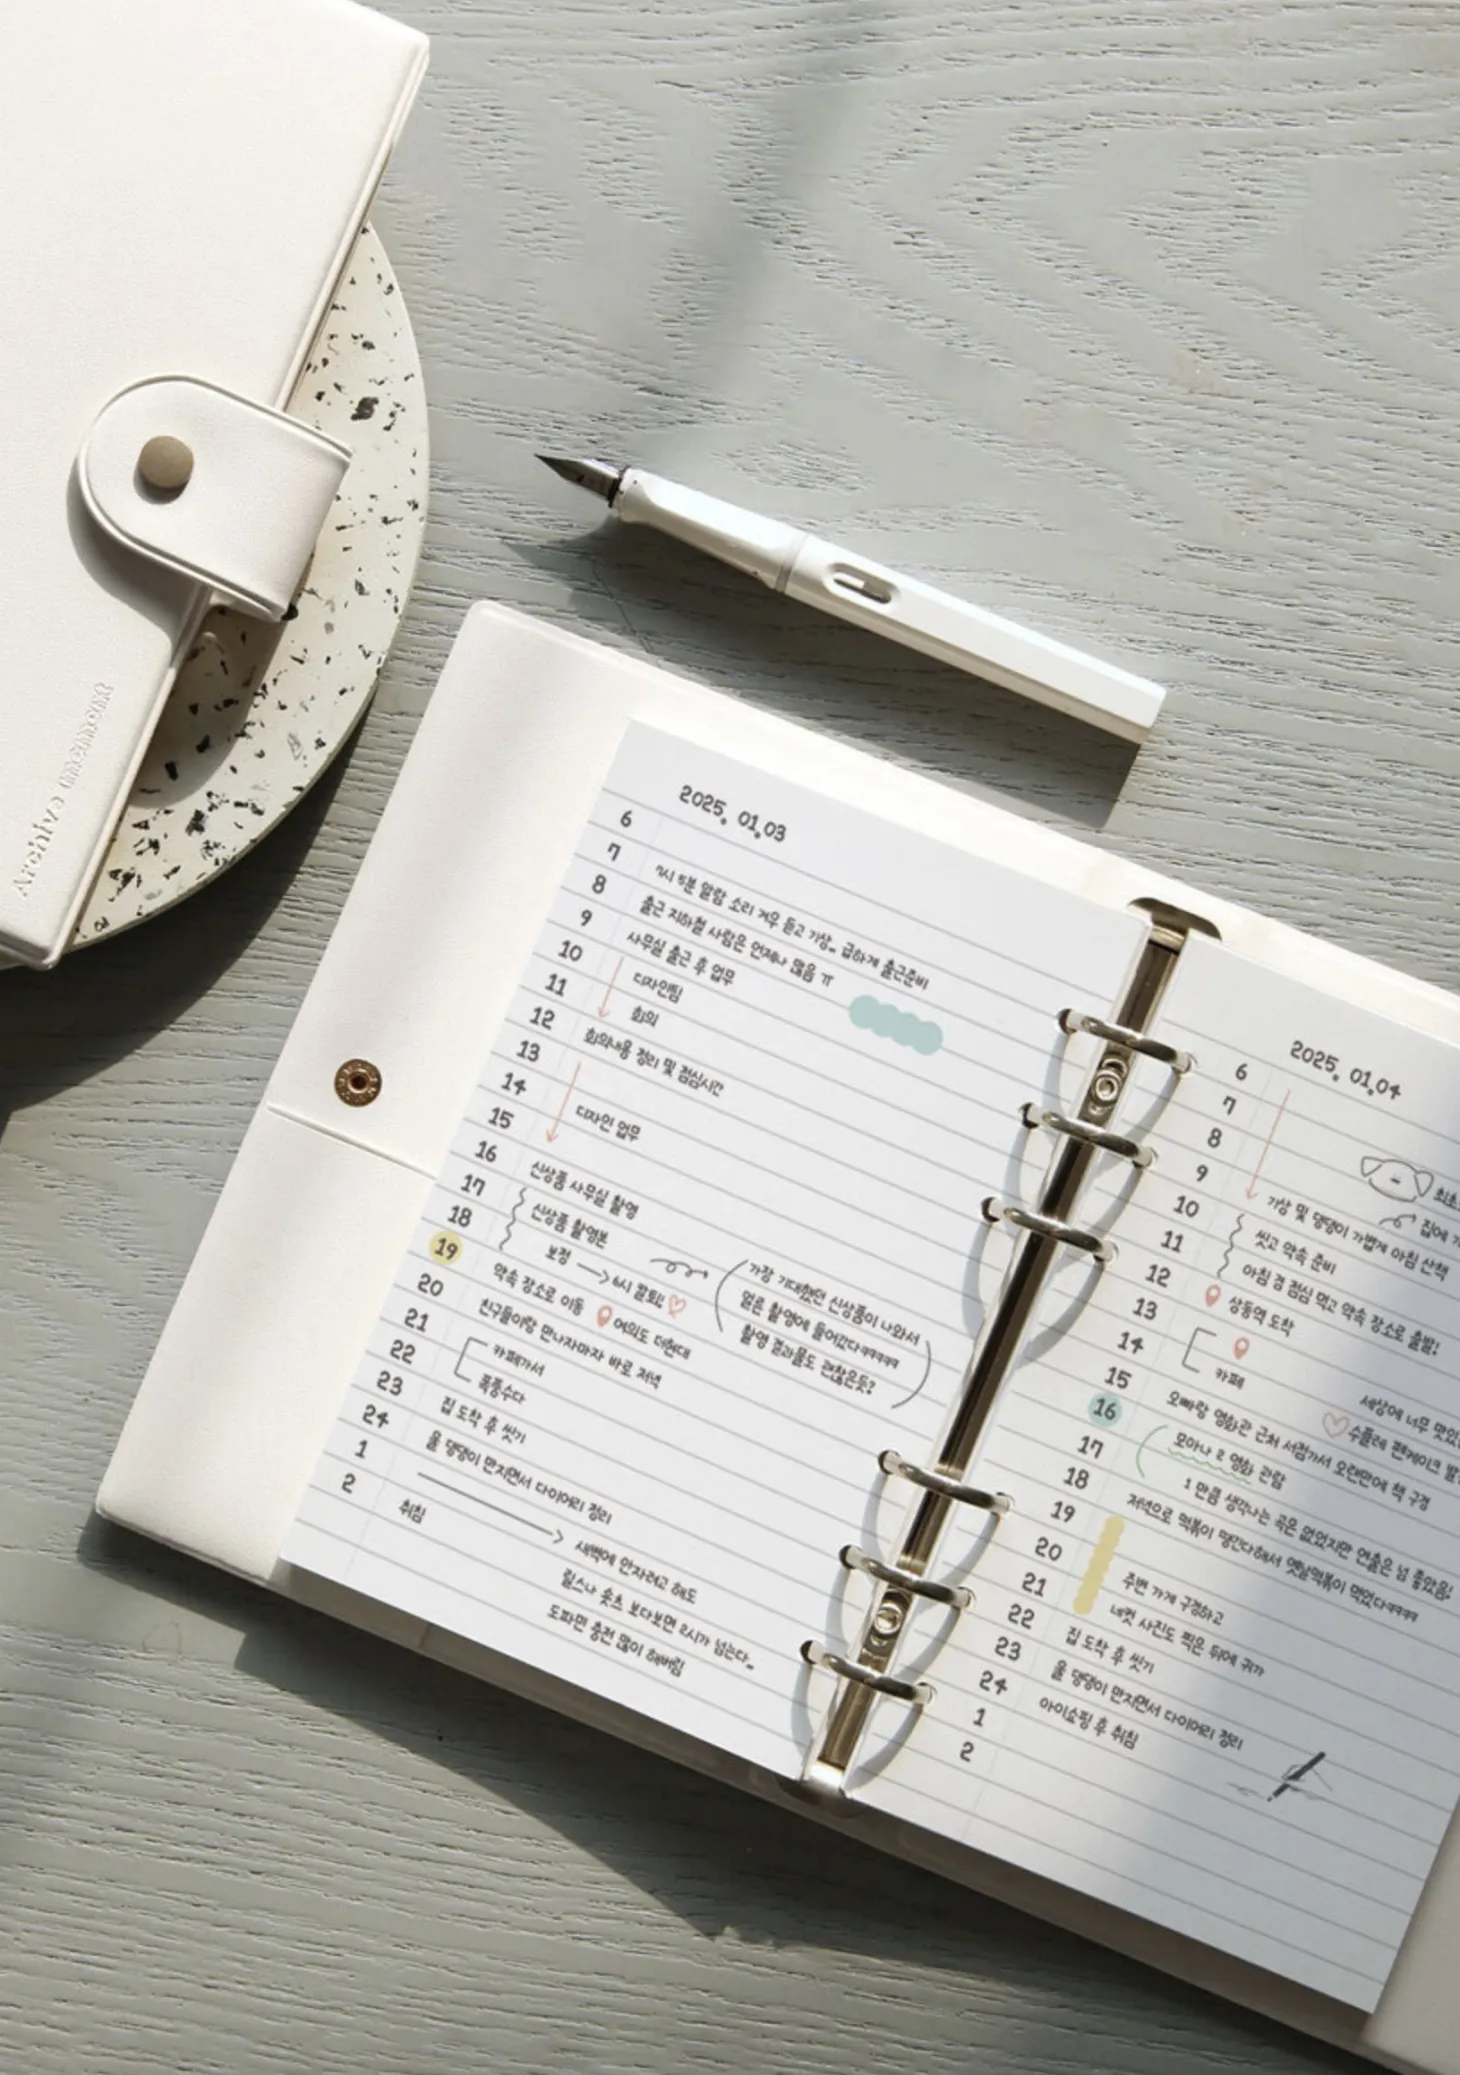 Archive moment
2025. 01.03
6
7 7시 5분 알람 소리 겨우 듣고 기상.. 급하게 출근준비
8 출근 지하철 사람은 언제나 많음 ㅠ
9 사무실 출근 후 업무
10 디자인팀
11 회의
12 회의내용 정리 및 점심시간
13
14 디자인 업무
15
16 신상품 사무실 촬영
17 신상품 촬영본
18 보정 → 6시 칼퇴!
가장 기대했던 신상품이 나와서
얼른 촬영에 들어갔다ㅋㅋㅋㅋㅋ
촬영 결과물도 괜찮은듯?
19 약속 장소로 이동 여의도 더현대
20 친구들이랑 만나자마자 바로 저녁
21 카페가서
22 폭풍수다
23 집 도착 후 씻기
24 울 댕댕이 만지면서 다이어리 정리
1
2 취침
새벽에 안자려고 해도
릴스나 숏츠 보다보면 2시가 넘는다..
도파민 충전 많이 해버림
2025. 01.04
6
7
8
9
최초
집에
10 기상 및 댕댕이 가볍게 아침 산책
11 씻고 약속 준비
12 아침 겸 점심 먹고 약속 장소로 출발!
13 상동역 도착
14
15 카페
세상에 너무
수플레 팬케이크
16 오빠랑 영화관 근처 서점가서 오랜만에 책 구경
17 모아나 2 영화 관람
18 1 만큼 생각나는 곡은 없었지만 연출은 넘 좋았음!
19 저녁으로 떡볶이 땡긴다해서 옛날떡볶이 먹었다ㅋㅋㅋㅋ
20
21 주변 가게 구경하고
22 네컷 사진도 찍은 뒤에 귀가
22 집 도착 후 씻기
23 울 댕댕이 만지면서 다이어리 정리
24 아이쇼핑 후 취침
1
2